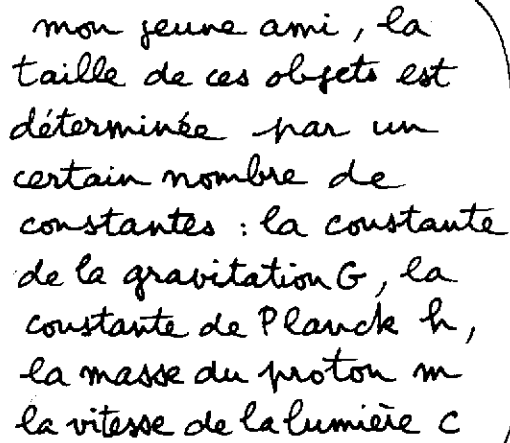 mon jeune ami, la
taille de ces objets est
déterminée par un
certain nombre de
constantes : la constante
de la gravitation G, la
constante de Planck h,
la masse du proton m
la vitesse de la lumière c